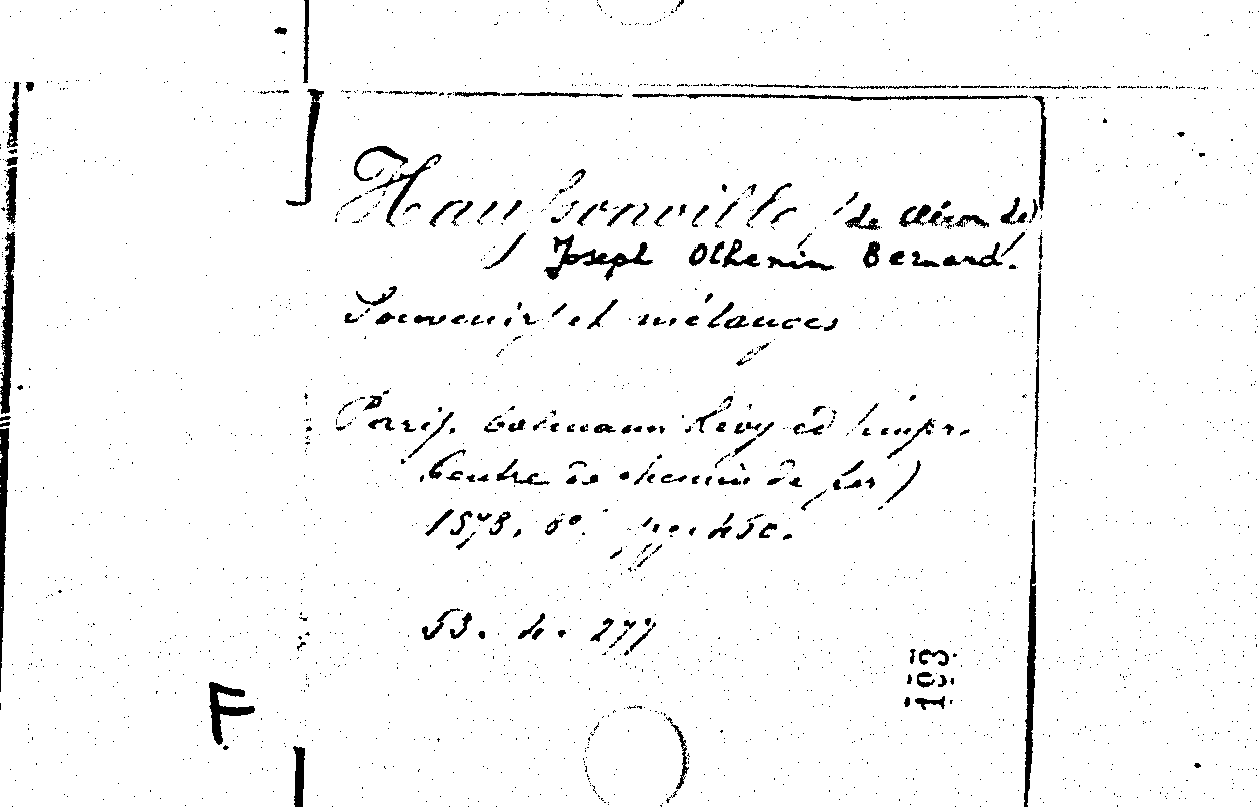 Haussonville (de Cléron de)
Joseph Othenin Bernard.
Souvenirs et mélanges
Paris. Calmann Lévy ed (impr.
Centre de chemin de fer)
1878. 8°. pg. 450.
53. 4. 277
193
F